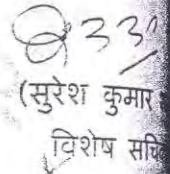 (सुरेश कुमार
विशेष सचि